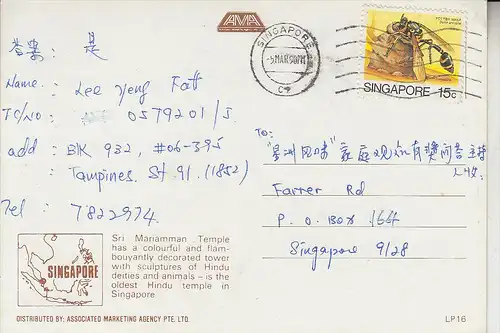 AMA
SINGAPORE
-5MAR
SINGAPORE 15c
答案: 是
Name: Lee Yeng Fatt
IC/NO: 0579201/J
add: Blk 932, #06-395
Tampines St 91. (1852)
Tel: 7822974
To:
"星洲风味" 家庭观众有奖问答 主持
人收
Farrer Rd
P.O. Box 166
Singapore 9128
SINGAPORE
Sri Mariamman Temple
has a colourful and flam-
bouyantly decorated tower
with sculptures of Hindu
deities and animals – is the
oldest Hindu temple in
Singapore
DISTRIBUTED BY: ASSOCIATED MARKETING AGENCY PTE. LTD.
LP16